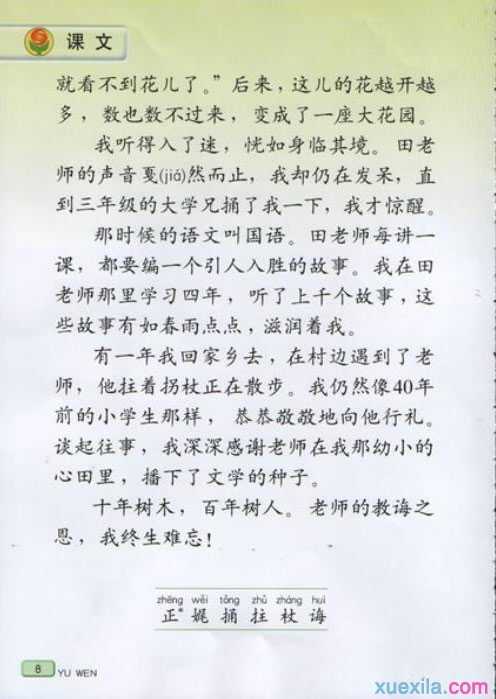 课文
就看不到花儿了。”后来，这儿的花越开越
多，数也数不过来，变成了一座大花园。
我听得入了迷，恍如身临其境。田老
师的声音戛(jiá)然而止，我却仍在发呆，直
到三年级的大学兄捅了我一下，我才惊醒。
那时候的语文叫国语。田老师每讲一
课，都要编一个引人入胜的故事。我在田
老师那里学习四年，听了上千个故事，这
些故事有如春雨点点，滋润着我。
有一年我回家乡去，在村边遇到了老
师，他拄着拐杖正在散步。我仍然像40年
前的小学生那样，恭恭敬敬地向他行礼。
谈起往事，我深深感谢老师在我那幼小的
心田里，播下了文学的种子。
十年树木，百年树人。老师的教诲之
恩，我终生难忘！
zhēng wěi tǒng zhǔ zhàng huì
正* 娓 捅 拄 杖 诲
8 YU WEN
xuexila.com